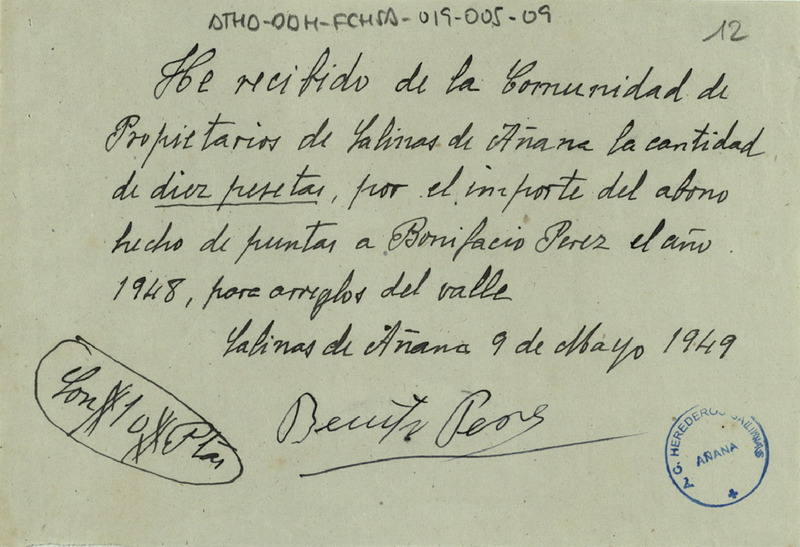 ATHA-DDH-FCHSA-019-005-09
12
He recibido de la Comunidad de
Propietarios de Salinas de Añana la cantidad
de diez pesetas, por el importe del abono
hecho de puntas a Bonifacio Perez el año
1948, para arreglos del valle
Salinas de Añana 9 de Mayo 1949
Son #10# Ptas
Benito
HEREDEROS SALINAS
AÑANA